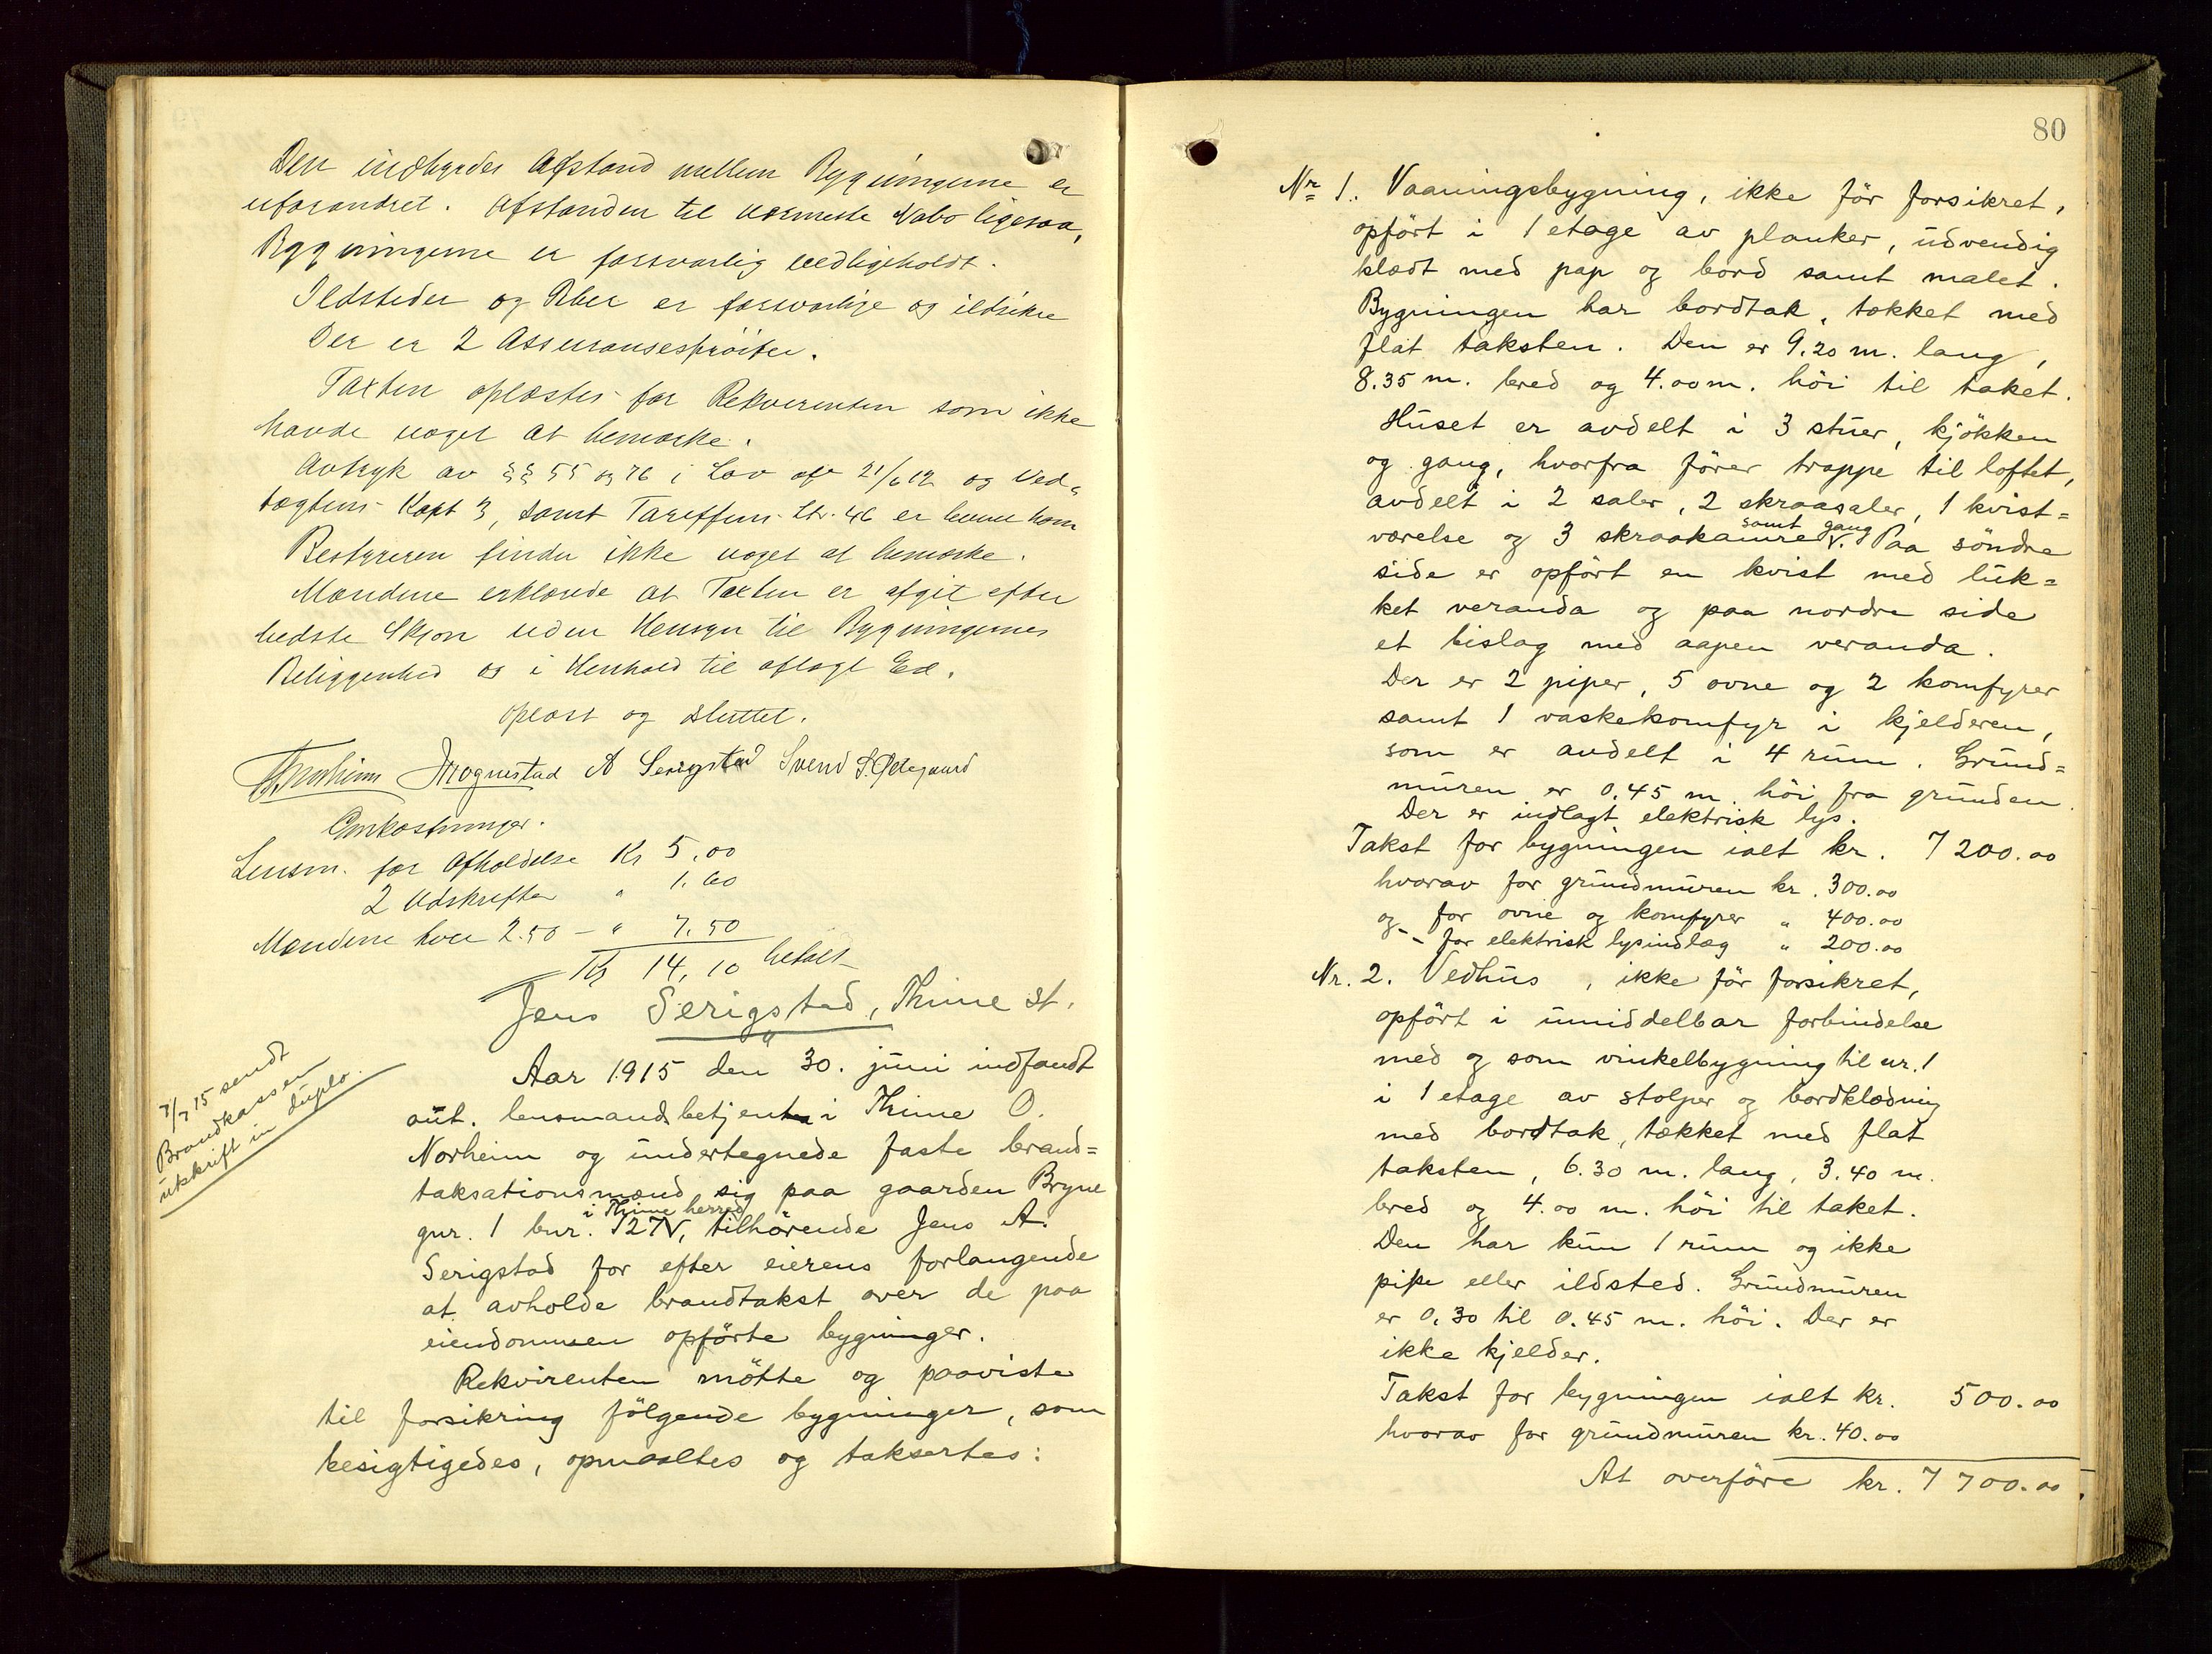 Den indbyrdes Afstand mellem Bygningerne er
uforandret. Afstanden til nærmeste Nabo ligesaa,
Bygningerne er forsvarlig vedligeholdt.
Ildsteder og Piber er forsvarlige og ildsikre
Der er 2 Assuransesprøiter.
Taxten oplæstes for Rekvirenten som ikke
havde noget at bemærke.
Avtryk av §§ 55 og 76 i Lov af 21/6 12 og Ved-
tægtens Kapt 3, samt Tariffens Litr. 46 er ham
Bestyreren finder ikke noget at bemærke.
Mændene erklærede at Taxten er afgit efter
bedste Skjøn uden Hensyn til Bygningernes
Beliggenhed og i Henhold til aflagt Ed.
Oplæst og sluttet.
Mognestad A Serigstad Svend S. Ødegaard
Omkostninger.
Lensm. for Afholdelse Kr 5,00
2 Udskrifter " 1.60
Mændene hver 2.50 – " 7.50
Kr 14,10 betalt
Jens Serigstad, Thime st.
7/7 15 sendt
Brandkassen
utskrift in duplo.
Aar 1915 den 30. juni indfandt
aut. lensmandsbetjent i Thime O.
Norheim og undertegnede faste brand=
taksationsmænd sig paa gaarden Bryne
i Thime herred
gnr. 1 bnr. 127 V, tilhörende Jens A.
Serigstad for efter eierens forlangende
at avholde brandtakst over de paa
eiendommen opförte bygninger.
Rekvirenten mötte og paaviste
til forsikring fölgende bygninger, som
besigtigedes, opmaaltes og taksertes:
80
Nr. 1. Vaaningsbygning, ikke för forsikret,
opfört i 1 etage av planker, udvendig
klædt med pap og bord samt malet.
Bygningen har bordtak, tækket med
flat taksten. Den er 9.20 m. lang,
8.35 m. bred og 4.00 m. höi til taket.
Huset er avdelt i 3 stuer, kjökken
og gang, hvorfra förer trappe til loftet,
avdelt i 2 saler, 2 skraasaler, 1 kvist=
samt gang
værelse og 3 skraakamre V. Paa söndre
side er opfört en kvist med luk=
ket veranda og paa nordre side
et bislag med aapen veranda.
Der er 2 piper, 5 ovne og 2 komfyrer
samt 1 vaskekomfyr i kjelderen,
som er avdelt i 4 rum. Grund=
muren er 0.45 m. höi fra grunden.
Der er indlagt elektrisk lys.
Takst for bygningen ialt kr. 7 200.00
hvorav for grundmuren kr. 300.00
og for ovne og komfyrer " 400.00
- - for elektrisk lysindlæg " 200.00
Nr. 2. Vedhus, ikke för forsikret,
opfört i umiddelbar forbindelse
med og som vinkelbygning til nr. 1
i 1 etage av stolper og bordklædning
med bordtak, tækket med flat
taksten, 6.30 m. lang, 3.40 m.
bred og 4.00 m. höi til taket.
Den har kun 1 rum og ikke
pipe eller ildsted. Grundmuren
er 0.30 til 0.45 m. höi. Der er
ikke kjelder.
Takst for bygningen ialt kr. 500.00
hvorav for grundmuren kr. 40.00
At overföre kr. 7 700.00